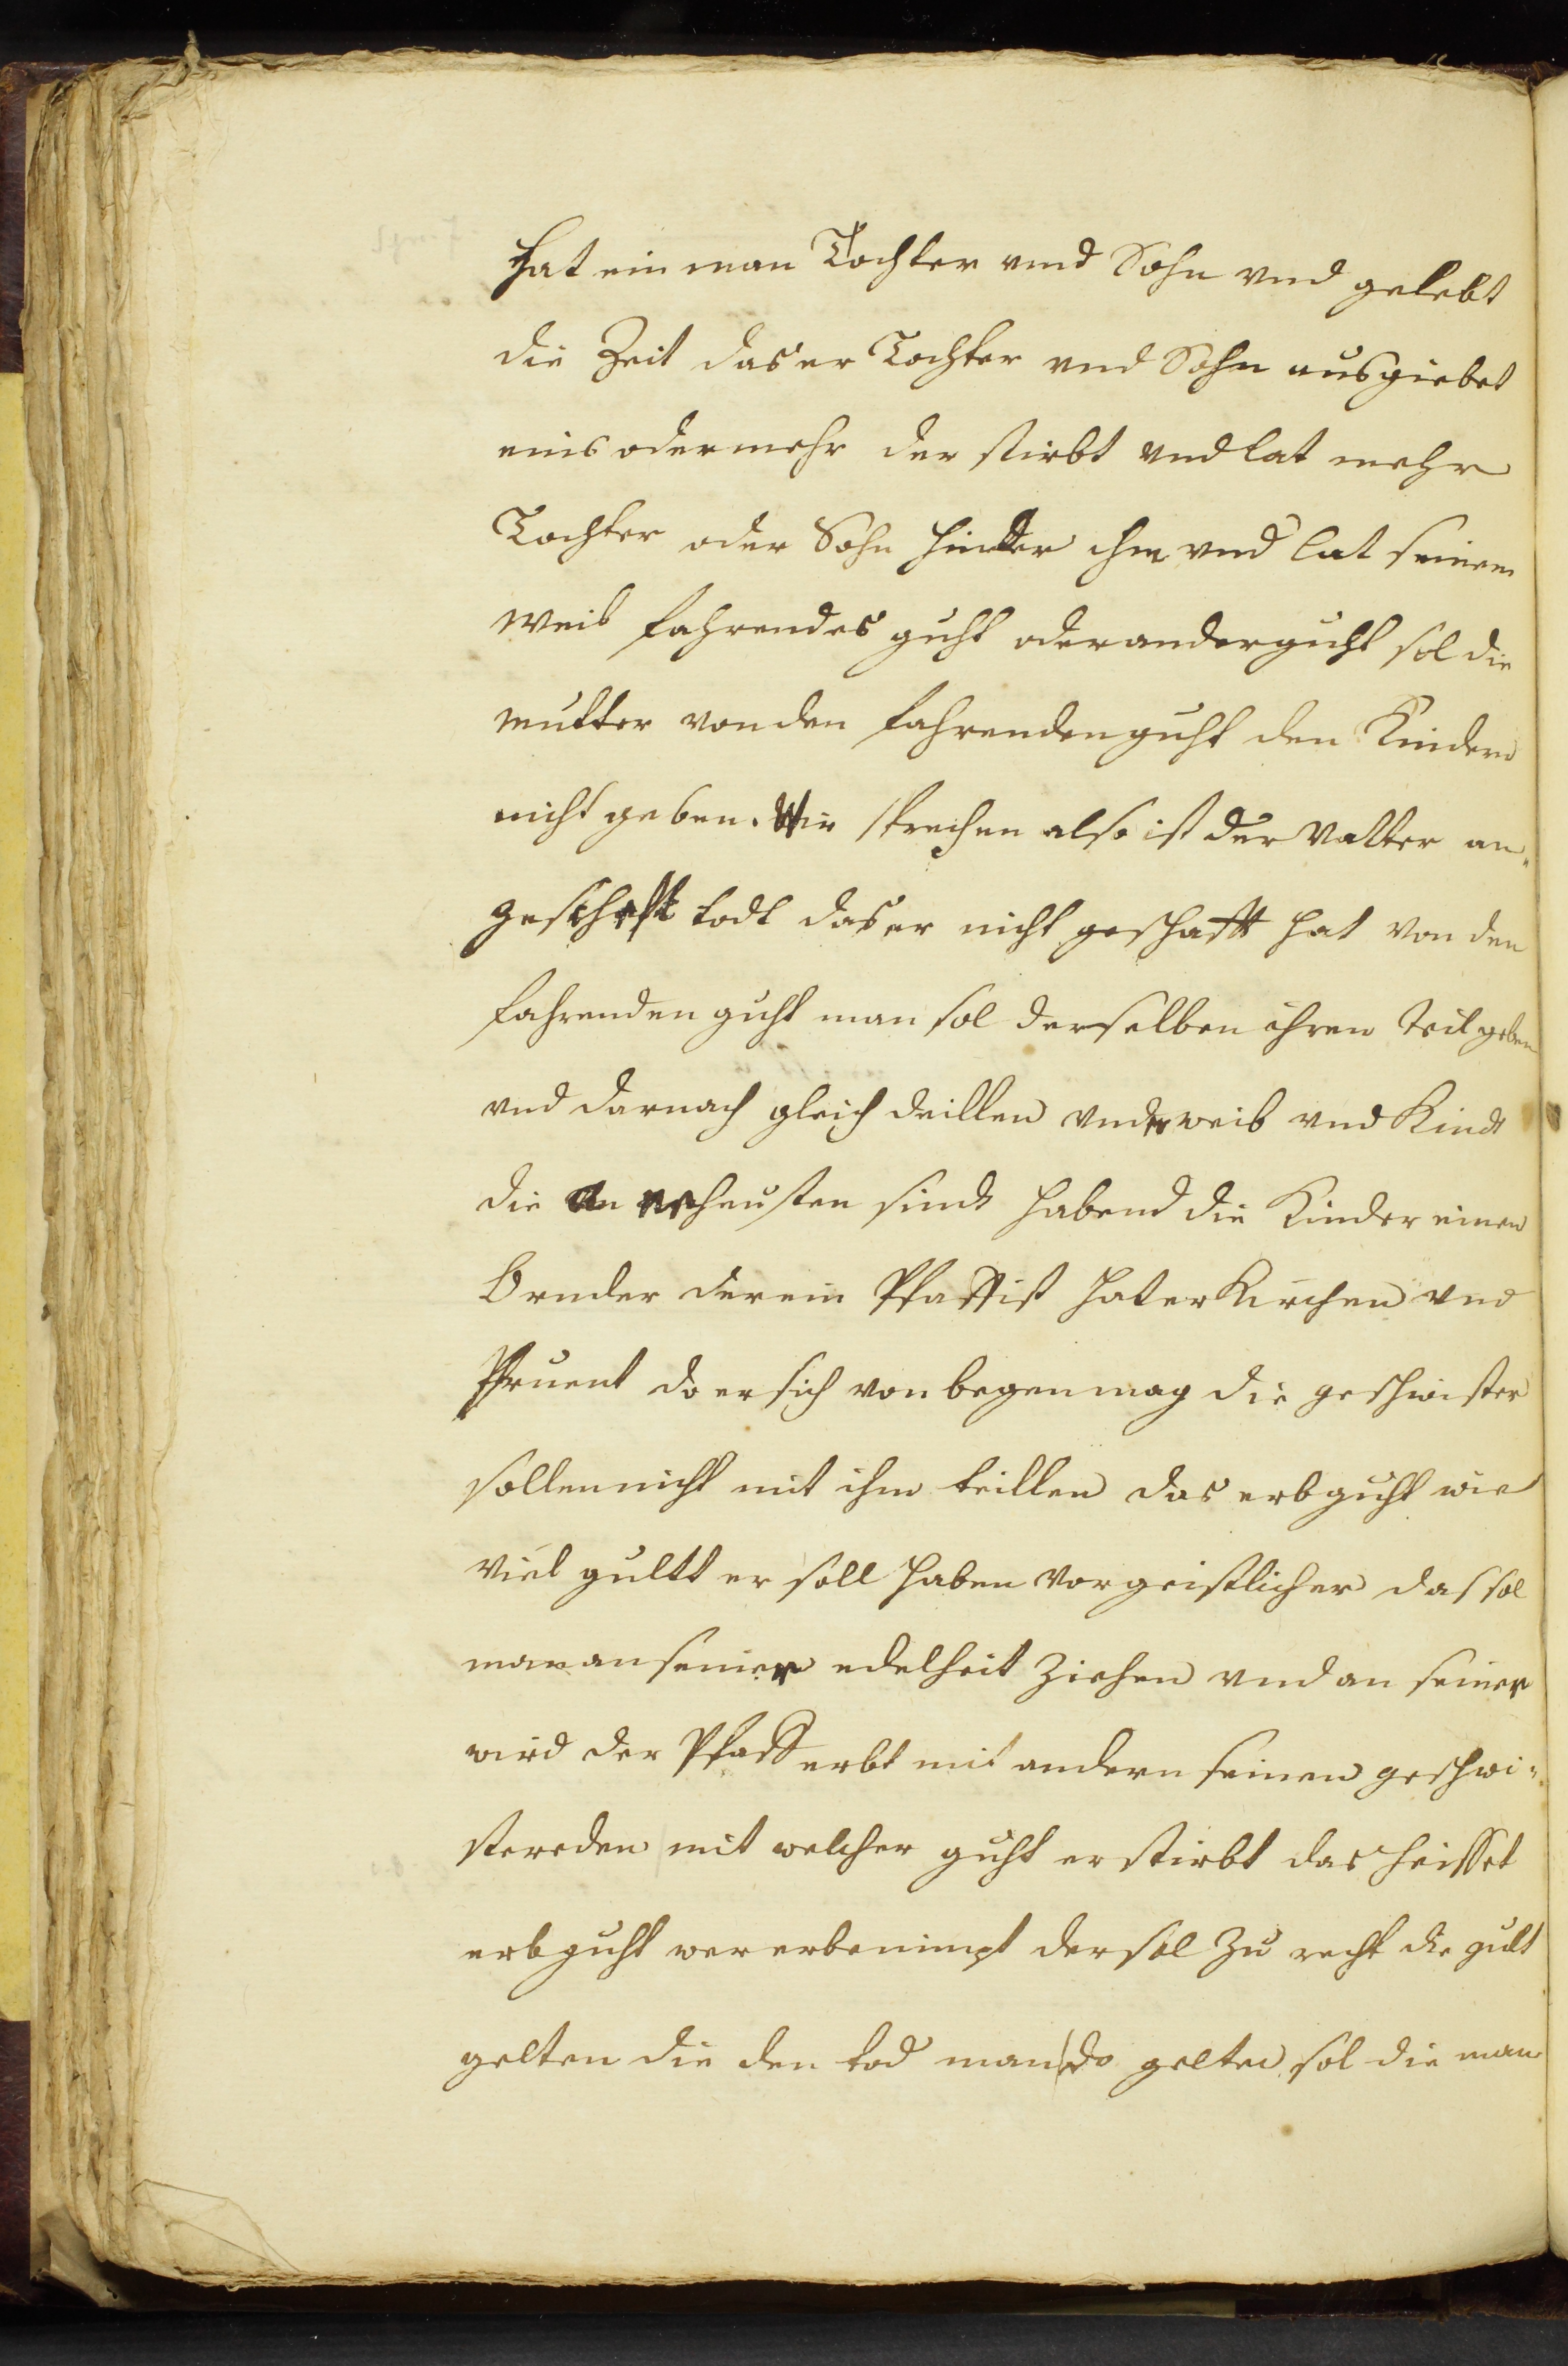 Hat ein man Tochter vnd Sohn vnd gelebt
die Zeit das er Tochter vnd Sohn ausgiebet
eins oder mehr der stirbt vnd lat mehr
Tochter oder Sohn hinder ihm vnd lat seinem
weib fahrendes guht oder ander guht sol die
mutter von den fahrenden guht den Kindern
nicht geben. Wir sprechen also ist der Vatter an„
geschefft todt das er nicht geschafft hat von den
fahrenden guht man sol derselben ihren teil geben
vnd darnach gleich deillen vnder weib vnd Kindt
die vnerheusten sindt habend die Kinder einen
Bruder der ein Pfaff ist hat er Kirchen vnd
Pfruent do er sich von begen mag die geschwister
sollen nicht mit ihm teillen das erbguht wie
viel gultt er soll haben vor geistlicher das sol
man an seiner edelheit Ziehen vnd an seiner
wird der Pfaff erbt mit andern seinen geschwi„
stereden mit welcher guht er stirbt das heisset
erbguht wer erbe nimpt der sol Zu recht die gult
gelten die den tod man do gelten sol die man